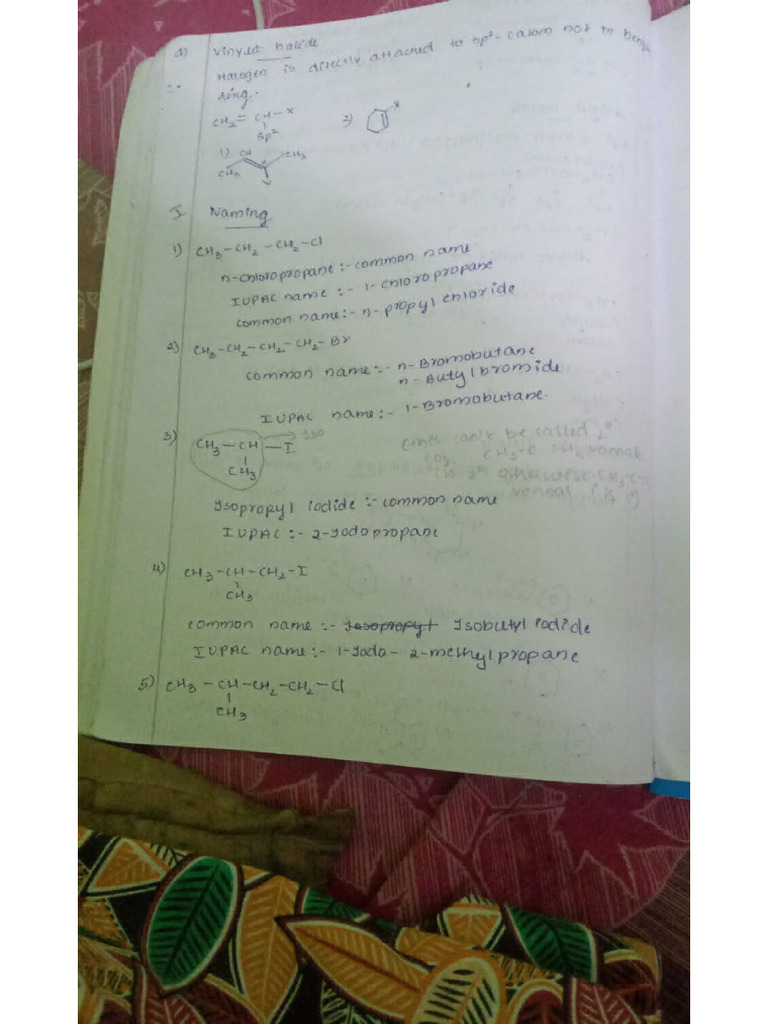 d) Vinylic halide
Halogen is directly attached to sp²-carbon not in
∴ ring.
CH₂ = CH - X 2) X
sp²
1) CH CH₃
CH₃ X
I Naming
1) CH₃ - CH₂ - CH₂ - Cl
n-chloropropane :- common name
IUPAC name :- 1-chloropropane
common name :- n-propyl chloride
2) CH₃ - CH₂ - CH₂ - CH₂ - Br
common name :- n-Bromobutane
n-Butyl bromide
IUPAC name :- 1-Bromobutane
3) CH₃ - CH - I → Iso
CH₃
can't be called 2°
Isopropyl iodide :- common name
IUPAC :- 2-Iodopropane
4) CH₃ - CH - CH₂ - I
CH₃
common name :- Isobutyl iodide
IUPAC name :- 1-Iodo - 2-methylpropane
5) CH₃ - CH - CH₂ - CH₂ - Cl
CH₃